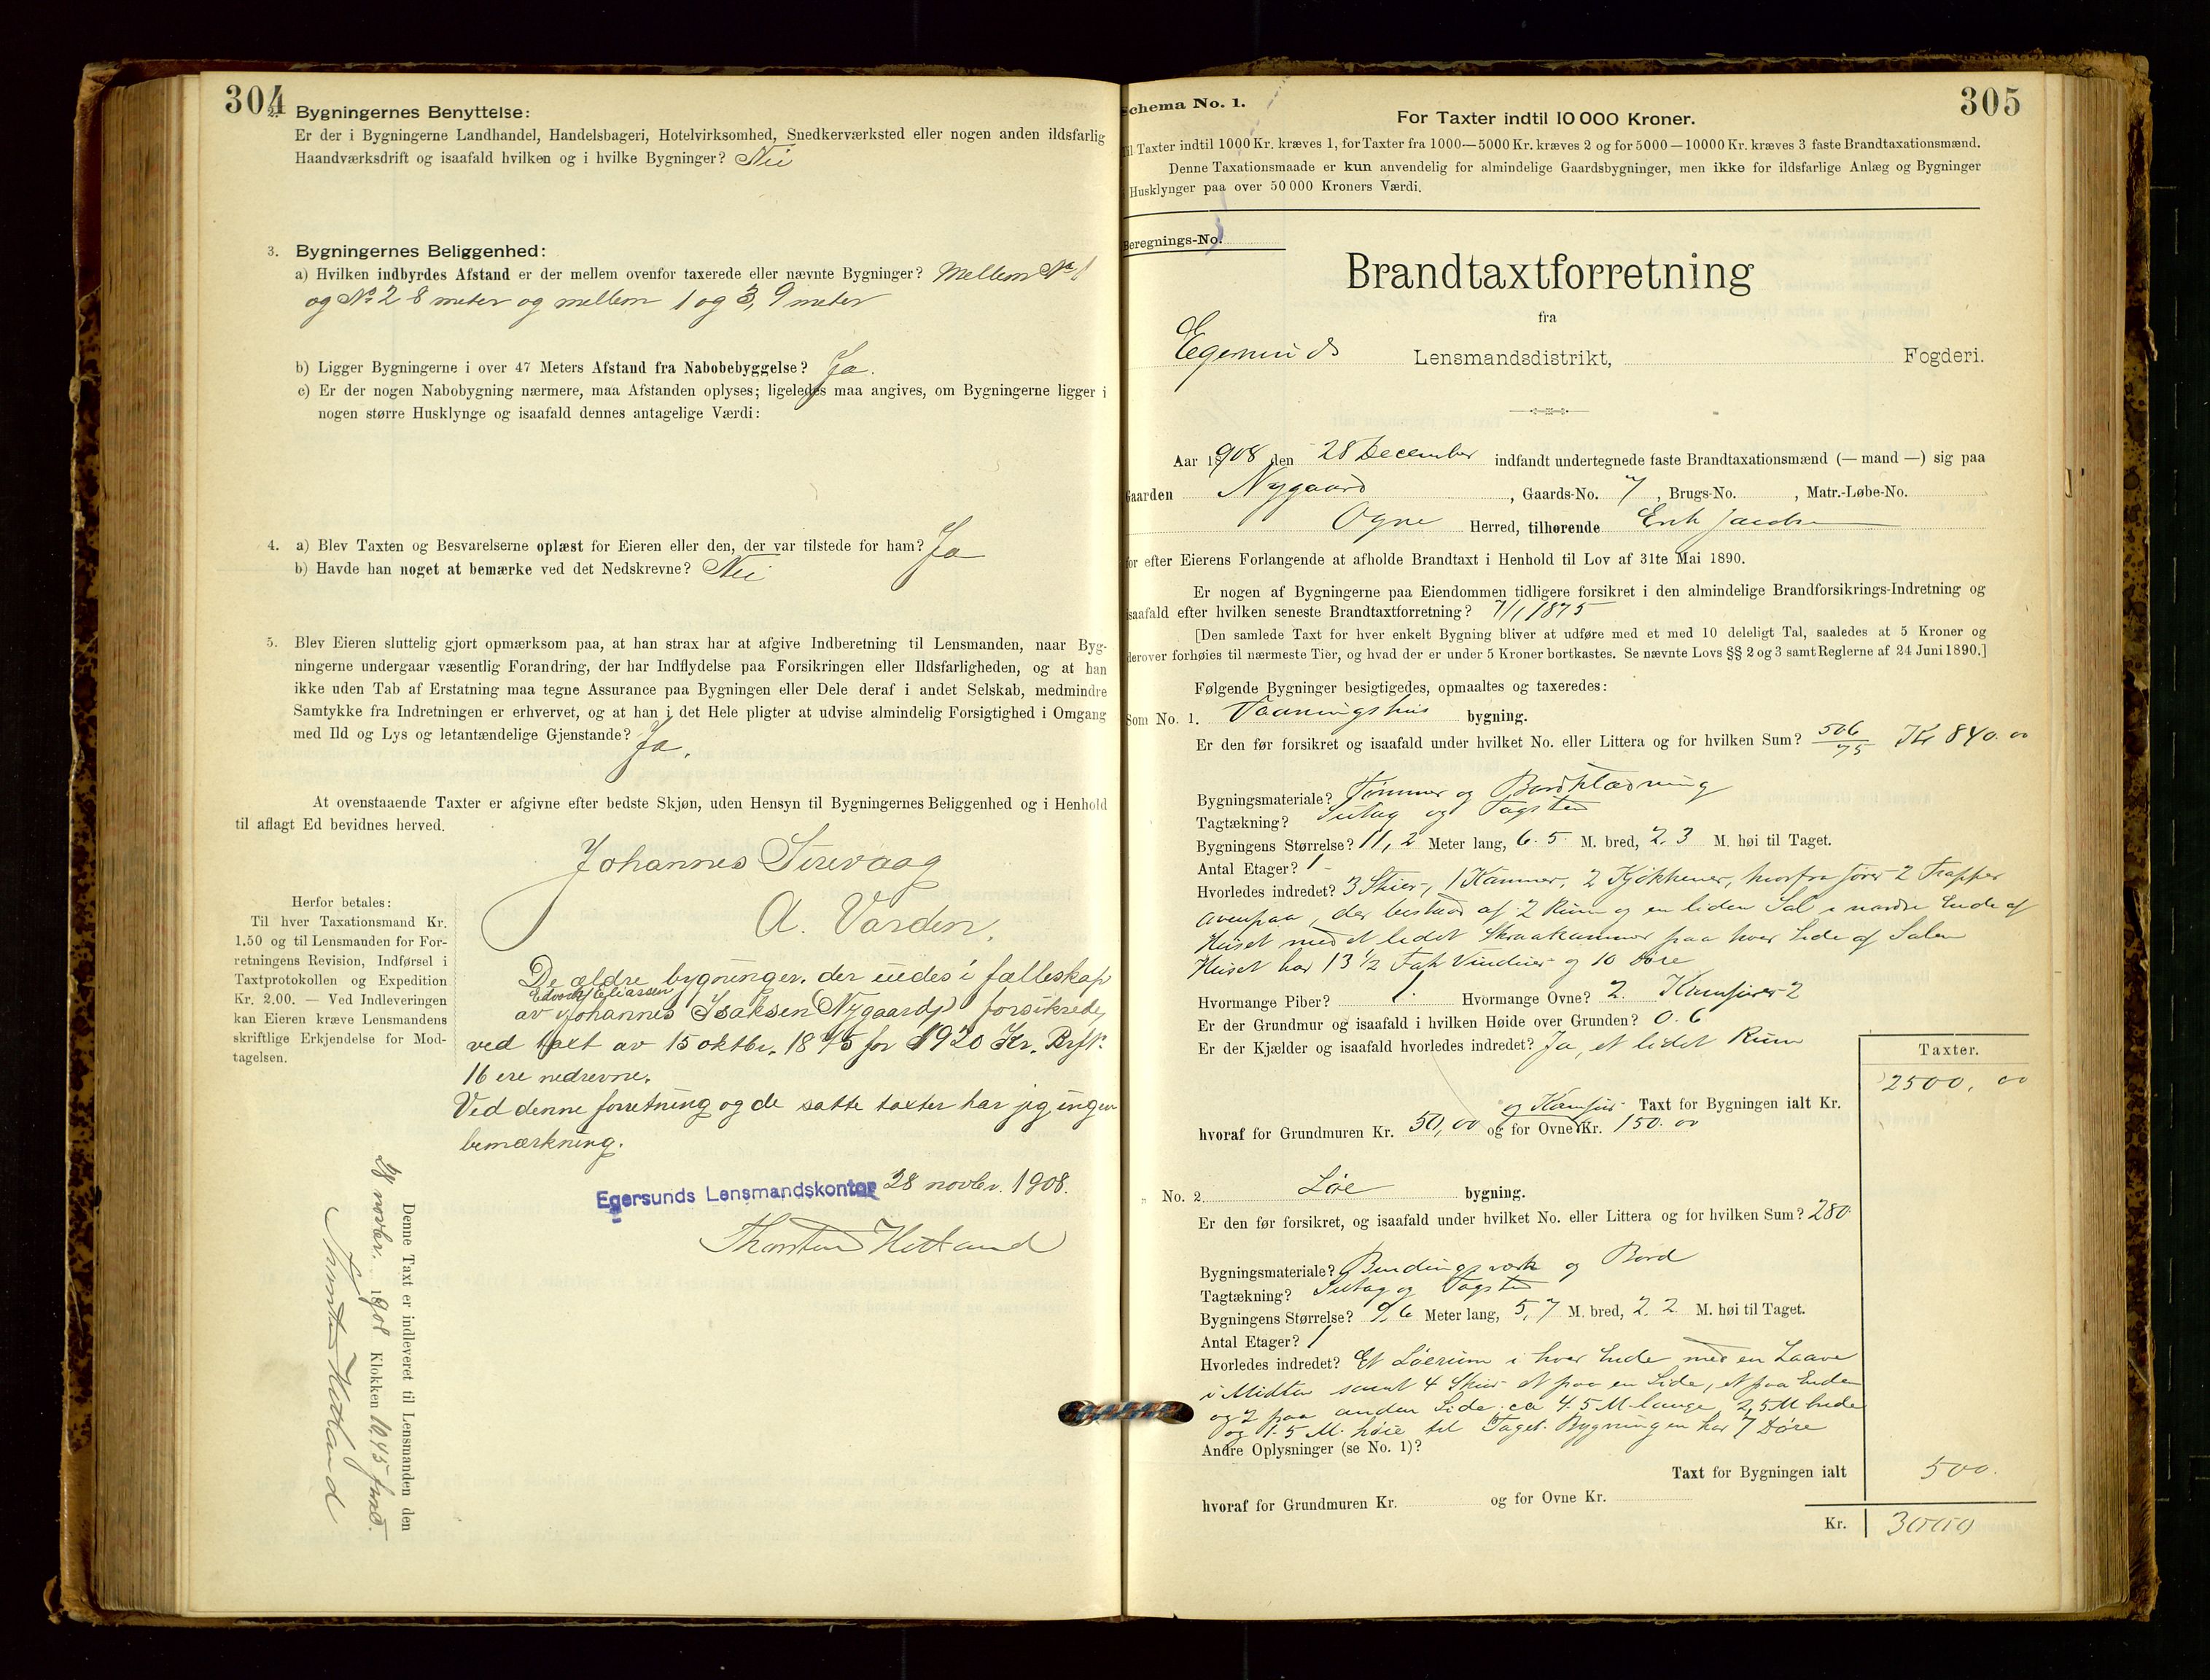 304
2. Bygningernes Benyttelse:
Er der i Bygningerne Landhandel, Handelsbageri, Hotelvirksomhed, Snedkerværksted eller nogen anden ildsfarlig
Haandværksdrift og isaafald hvilken og i hvilke Bygninger? Nei
3. Bygningernes Beliggenhed:
a) Hvilken indbyrdes Afstand er der mellem ovenfor taxerede eller nævnte Bygninger? Mellem No 1
og No 2 8 meter og mellem 1 og 3, 9 meter
b) Ligger Bygningerne i over 47 Meters Afstand fra Nabobebyggelse? Ja.
c) Er der nogen Nabobygning nærmere, maa Afstanden oplyses; ligeledes maa angives, om Bygningerne ligger i
nogen større Husklynge og isaafald dennes antagelige Værdi:
4. a) Blev Taxten og Besvarelserne oplæst for Eieren eller den, der var tilstede for ham? Ja
b) Havde han noget at bemærke ved det Nedskrevne? Nei
5. Blev Eieren sluttelig gjort opmærksom paa, at han strax har at afgive Indberetning til Lensmanden, naar Byg-
ningerne undergaar væsentlig Forandring, der har Indflydelse paa Forsikringen eller Ildsfarligheden, og at han
ikke uden Tab af Erstatning maa tegne Assurance paa Bygningen eller Dele deraf i andet Selskab, medmindre
Samtykke fra Indretningen er erhvervet, og at han i det Hele pligter at udvise almindelig Forsigtighed i Omgang
med Ild og Lys og letantændelige Gjenstande? Ja.
At ovenstaaende Taxter er afgivne efter bedste Skjøn, uden Hensyn til Bygningernes Beliggenhed og i Henhold
til aflagt Ed bevidnes herved.
Johannes Sirevaag
A. Varden.
Herfor betales:
Til hver Taxationsmand Kr.
1.50 og til Lensmanden for For-
retningens Revision, Indførsel i
Taxtprotokollen og Expedition
Kr. 2.00. — Ved Indleveringen
kan Eieren kræve Lensmandens
skriftlige Erkjendelse for Mod-
tagelsen.
De ældre bygninger, der eiedes i fælleskap
Edvard Eliassen
av Johannes Isaksen (Nygaard) forsikrede,
ved taxt av 15 oktbr. 1875 for 1920 Kr. Brfk.
16 ere nedrevne.
Ved denne forretning og de satte taxter har jeg ingen
bemærkning.
Egersunds Lensmandskontor 28 novbr. 1908.
Thorsten Hetland
Denne Taxt er indleveret til Lensmanden den
28 novbr. 1908 Klokken 10,45 form.
Thorsten Hetland
305
Schema No. 1.
For Taxter indtil 10 000 Kroner.
Til Taxter indtil 1000 Kr. kræves 1, for Taxter fra 1000—5000 Kr. kræves 2 og for 5000—10000 Kr. kræves 3 faste Brandtaxationsmænd.
Denne Taxationsmaade er kun anvendelig for almindelige Gaardsbygninger, men ikke for ildsfarlige Anlæg og Bygninger
i Husklynger paa over 50 000 Kroners Værdi.
Beregnings-No.
Brandtaxtforretning
fra
Egersunds Lensmandsdistrikt, Fogderi.
Aar 1908 den 28 December indfandt undertegnede faste Brandtaxationsmænd (— mand —) sig paa
Gaarden Nygaard, Gaards-No. 7, Brugs-No. , Matr.-Løbe-No.
Ogne Herred, tilhørende Erik Jacobsen
for efter Eierens Forlangende at afholde Brandtaxt i Henhold til Lov af 31te Mai 1890.
Er nogen af Bygningerne paa Eiendommen tidligere forsikret i den almindelige Brandforsikrings-Indretning og
isaafald efter hvilken seneste Brandtaxtforretning? 7/1 1875
[Den samlede Taxt for hver enkelt Bygning bliver at udføre med et med 10 deleligt Tal, saaledes at 5 Kroner og
derover forhøies til nærmeste Tier, og hvad der er under 5 Kroner bortkastes. Se nævnte Lovs §§ 2 og 3 samt Reglerne af 24 Juni 1890.]
Følgende Bygninger besigtigedes, opmaaltes og taxeredes:
Som No. 1. Vaaningshus bygning.
Er den før forsikret og isaafald under hvilket No. eller Littera og for hvilken Sum? 506/75 Kr 840.00
Bygningsmateriale? Tømmer og Bordklædning
Tagtækning? Sutag og Tagsten
Bygningens Størrelse? 11,2 Meter lang, 6.5 M. bred, 2.3 M. høi til Taget.
Antal Etager? 1
Hvorledes indredet? 3 Stuer, 1 Kammer, 2 Kjøkkener, hvorfra fører 2 Trapper
ovenpaa, der bestaar af 2 Rum og en liden Sal i nordre Ende af
Huset med et lidet Skraakammer paa hver Side af Salen
Huset har 13 1/2 Fah Vinduer og 10 Døre
Hvormange Piber? 1. Hvormange Ovne? 2. Komfurer 2
Er der Grundmur og isaafald i hvilken Høide over Grunden? 0.6
Er der Kjælder og isaafald hvorledes indredet? Ja, et lidet Rum
Taxter.
2500,00
og Komfur Taxt for Bygningen ialt Kr.
hvoraf for Grundmuren Kr. 50,00 og for Ovne Kr. 150.00
„ No. 2. Løe bygning.
Er den før forsikret, og isaafald under hvilket No. eller Littera og for hvilken Sum? 280.
Bygningsmateriale? Bindingsværk og Bord
Tagtækning? Sutag og Tagsten
Bygningens Størrelse? 9,6 Meter lang, 5,7 M. bred, 2.2 M. høi til Taget.
Antal Etager? 1
Hvorledes indredet? Et Løerum i hver Ende med en Laave
i Midten samt 4 Skur et paa en Side, et paa Enden
og 2 paa anden Side ca 4.5 M lange, 2,5 M brede
og 1.5 M. høie til Taget. Bygningen har 7 Døre
Andre Oplysninger (se No. 1)?
Taxt for Bygningen ialt 500.
hvoraf for Grundmuren Kr. og for Ovne Kr.
Kr. 3000